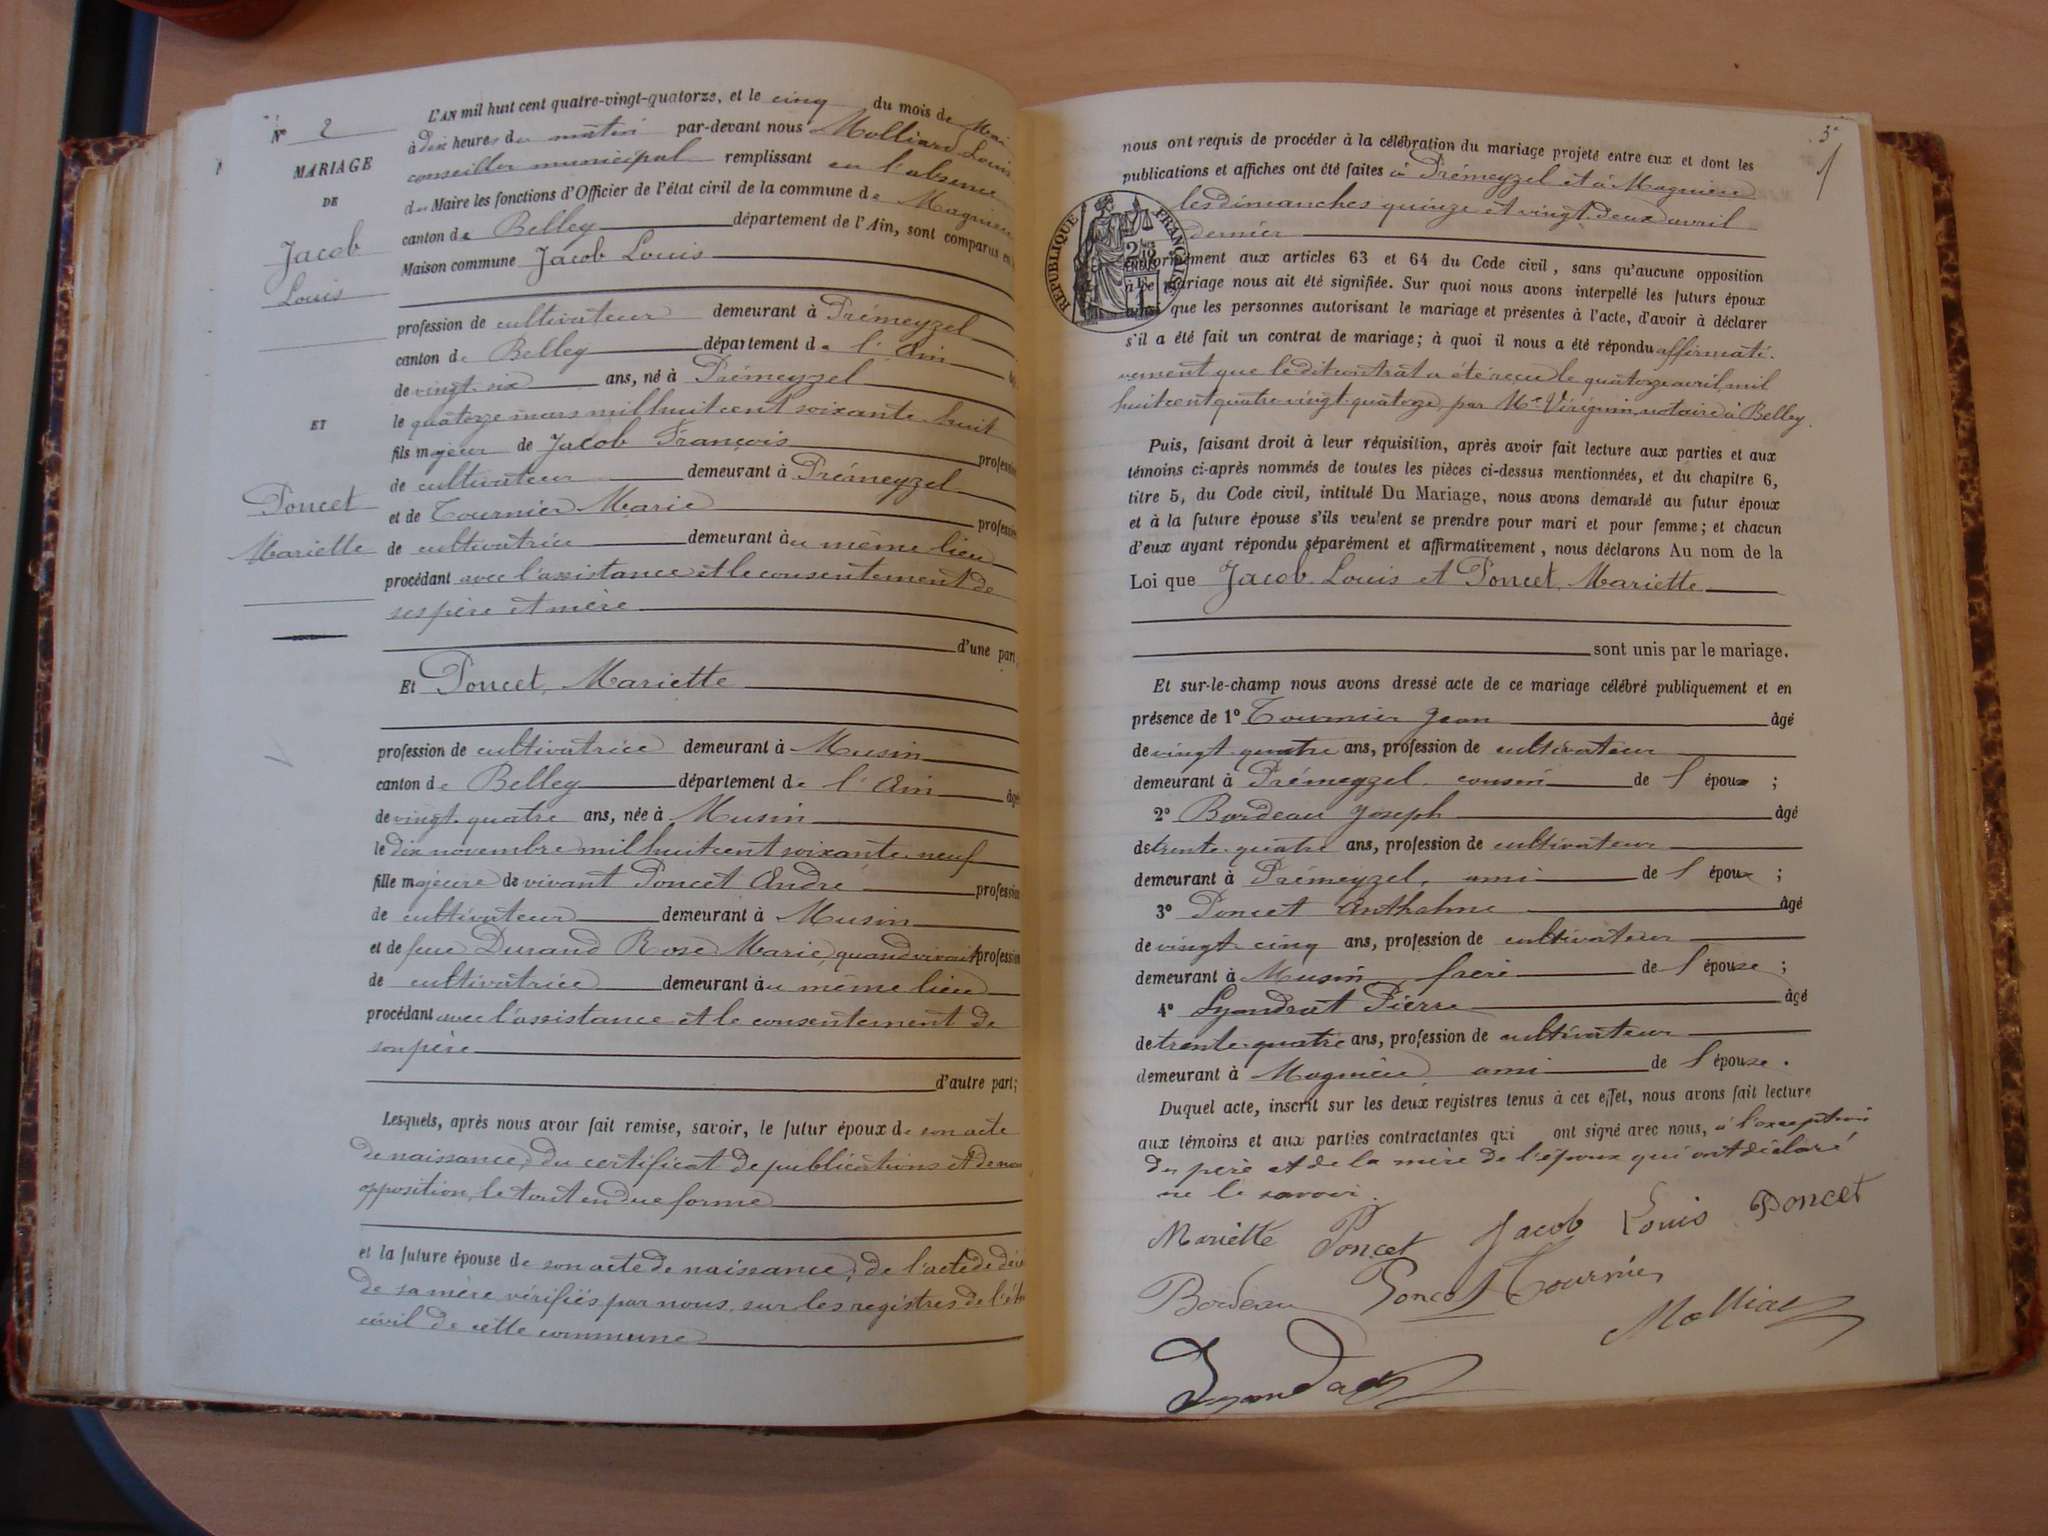 N° 2
MARIAGE
DE
Jacob
Louis
ET
Poncet
Mariette
L'AN mil huit cent quatre-vingt-quatorze, et le cinq du mois de Mai
à dix heures du matin par-devant nous Molliard Louis
conseiller municipal remplissant en l'absence
du Maire les fonctions d'Officier de l'état civil de la commune de Magnieu
canton de Belley département de l'Ain, sont comparus en
Maison commune Jacob Louis
profession de cultivateur demeurant à Prémeyzel
canton de Belley département de l'Ain
de vingt six ans, né à Prémeyzel
le quatorze mars mil huit cent soixante huit
fils majeur de Jacob François profession
de cultivateur demeurant à Prémeyzel
et de Tournier Marie profession
de cultivatrice demeurant au même lieu
procédant avec l'assistance et le consentement de
ses père et mère
d'une part,
Et Poncet, Mariette
profession de cultivatrice demeurant à Musin
canton de Belley département de l'Ain âgé
de vingt quatre ans, née à Musin
le dix novembre mil huit cent soixante neuf
fille majeure de vivant Poncet André profession
de cultivateur demeurant à Musin
et de feue Durand Rose Marie, quand vivait profession
de cultivatrice demeurant au même lieu
procédant avec l'assistance et le consentement de
son père
d'autre part;
Lesquels, après nous avoir fait remise, savoir, le futur époux de son acte
de naissance, du certificat de publications et de non
opposition, le tout en due forme
et la future épouse de son acte de naissance, de l'acte de décès
de sa mère vérifiés par nous sur les registres de l'état
civil de cette commune
3e
nous ont requis de procéder à la célébration du mariage projeté entre eux et dont les
publications et affiches ont été faites à Prémeyzel et à Magnieu
les dimanches quinze et vingt deux avril
dernier
RÉPUBLIQUE FRANÇAISE
conformément aux articles 63 et 64 du Code civil, sans qu'aucune opposition
à ce mariage nous ait été signifiée. Sur quoi nous avons interpellé les futurs époux
ainsi que les personnes autorisant le mariage et présentes à l'acte, d'avoir à déclarer
s'il a été fait un contrat de mariage; à quoi il nous a été répondu affirmati-
vement que le dit contrat a été reçu le quatorze avril mil
huit cent quatre vingt quatorze, par Me Viregnin, notaire à Belley.
Puis, faisant droit à leur réquisition, après avoir fait lecture aux parties et aux
témoins ci-après nommés de toutes les pièces ci-dessus mentionnées, et du chapitre 6,
titre 5, du Code civil, intitulé Du Mariage, nous avons demandé au futur époux
et à la future épouse s'ils veulent se prendre pour mari et pour femme; et chacun
d'eux ayant répondu séparément et affirmativement, nous déclarons Au nom de la
Loi que Jacob Louis et Poncet, Mariette
sont unis par le mariage.
Et sur-le-champ nous avons dressé acte de ce mariage célébré publiquement et en
présence de 1° Tournier Jean âgé
de vingt quatre ans, profession de cultivateur
demeurant à Prémeyzel, cousin de l'époux ;
2° Bordeau Joseph âgé
de trente quatre ans, profession de cultivateur
demeurant à Prémeyzel, ami de l'époux ;
3° Poncet Anthelme âgé
de vingt cinq ans, profession de cultivateur
demeurant à Musin frère de l'épouse ;
4° Lyandrat Pierre âgé
de trente quatre ans, profession de cultivateur
demeurant à Magnieu ami de l'épouse.
Duquel acte, inscrit sur les deux registres tenus à cet effet, nous avons fait lecture
aux témoins et aux parties contractantes qui ont signé avec nous, à l'exception
du père et de la mère de l'époux qui ont déclaré
ne le savoir.
Mariette Poncet Jacob Louis Poncet
Bordeau Poncet Tournier
Molliard
Lyandrat